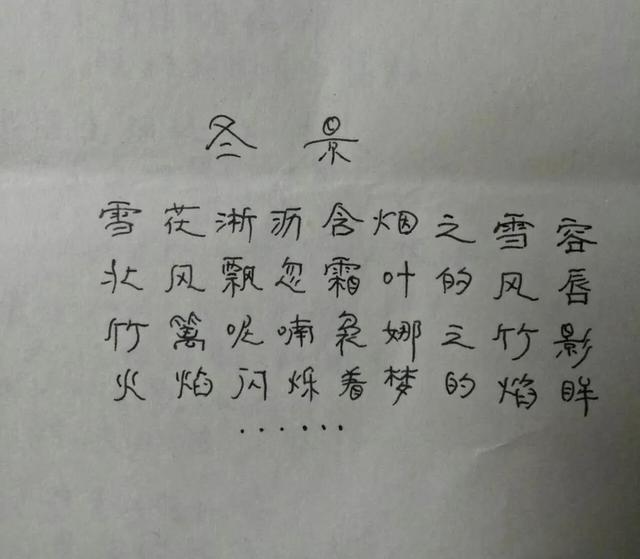 冬景
雪茫淅沥含烟之雪容
北风飘忽霜叶的风唇
竹篱呢喃袅娜之竹影
火焰闪烁着梦的焰眸
······